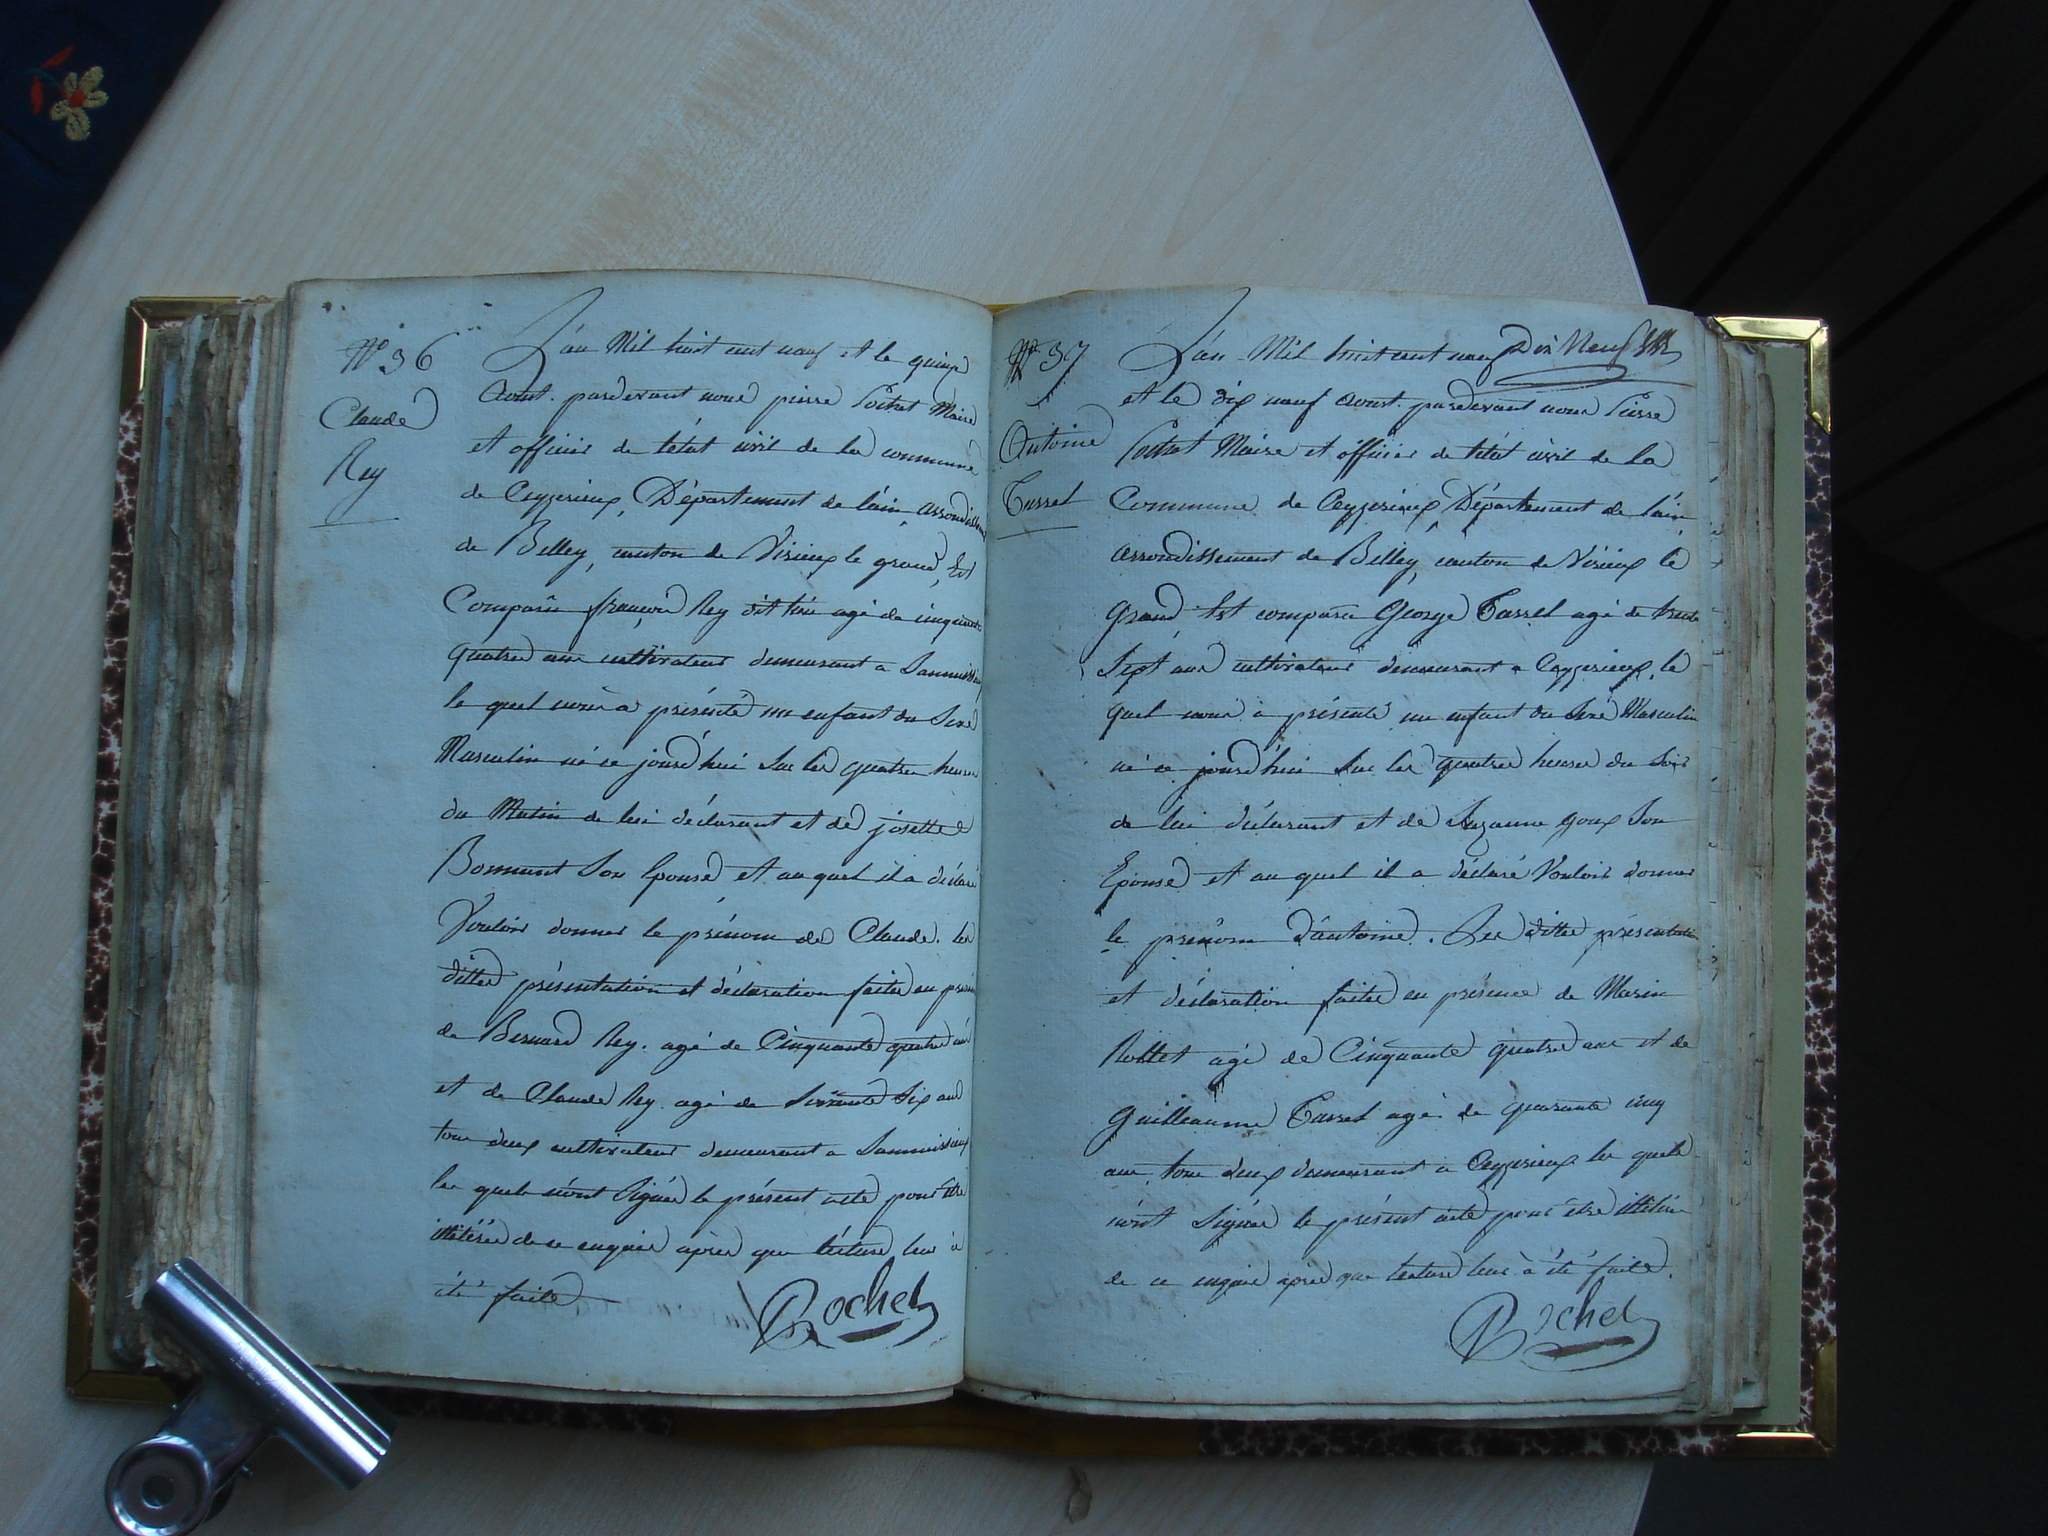 N° 36
Claude
Rey
L'an Mil huit cent neuf et le quinze
Aoust. pardevant nous pierre Poitrat Maire
et officier de l'état civil de la commune
de Ceyzerieux, Département de l'ain, arrondissement
de Belley, canton de Virieux le grand, Est
Comparû françois Rey dit agé de cinquante
quatre ans cultivateur demeurant a Sammissieux
le quel nous a présenté un enfant du Sexe
Masculin né ce jourd'hui Sur les quatre heures
du Matin de lui déclarant et de josette
Bonnant Son Epouse et au quel il a déclaré
Vouloir donner le prénom de Claude. les
dittes présentation et déclaration faites en présence
de Bernard Rey. agé de Cinquante quatre ans
et de Claude Rey. agé de Soixante Six ans
tous deux cultivateurs demeurant a Sammissieux
les quels n'ont Signés le présent acte pour être
illitérés de ce enquis après que lecture leur a
été faite
Rochet
N° 37
Antoine
Tarrel
L'an Mil huit cent neuf Dix Neuf
et le dix neuf Aoust. pardevant nous Pierre
Poitrat Maire et officier de l'état civil de la
Commune de Ceyzerieux, Département de l'ain
arrondissement de Belley, canton de Virieux le
grand Est comparû George Tarrel agé de trente
Sept ans cultivateur demeurant a Ceyzerieux. le
quel nous à présenté un enfant du Sexe Masculin
né ce jourd'hui Sur les quatre heures du Soir
de lui déclarant et de Suzanne goux Son
Epouse et au quel il a déclaré Vouloir donner
le prénom d'antoine. Les dittes présentation
et déclaration faites en présence de Marin
Rollet agé de Cinquante quatre ans et de
Guilleaume Tarrel agé de quarante cinq
ans tous deux demeurant a Ceyzerieux les quels
n'ont Signés le présent acte pour être illitérés
de ce enquis après que lecture leur à été faite.
Rochet